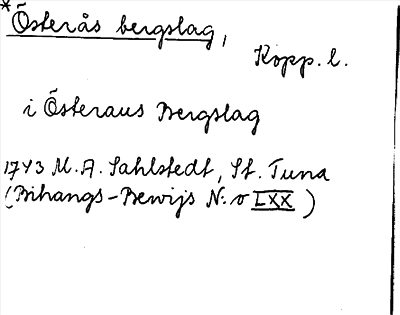 *Österås bergslag,
Kopp. l.
i Österaus Bergslag
1743 M. A. Sahlstedt, St. Tuna
(Bihangs-Bewijs N:o LXX)